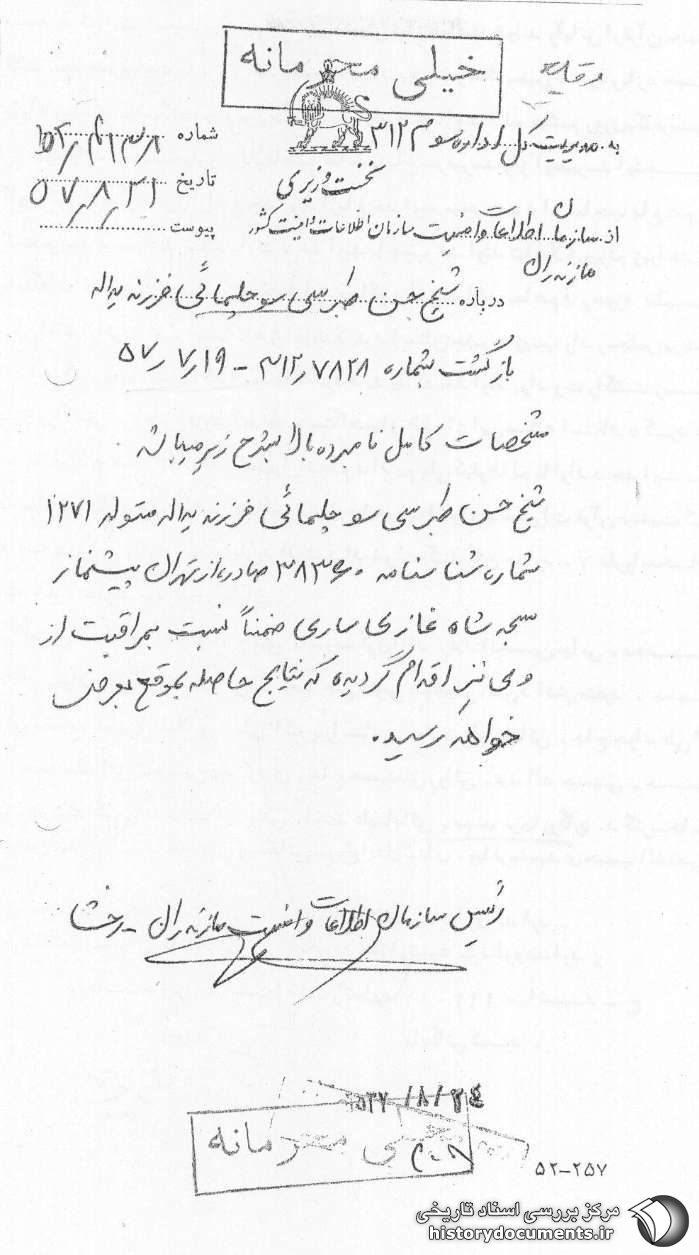 خیلی محرمانه
به مدیریت کل اداره سوم ۳۱۲
شماره
نخست وزیری
تاریخ ۵۷٫۸٫۲۱
از سازمان اطلاعات و امنیت سازمان اطلاعات و امنیت کشور
پیوست
مازندران
درباره شیخ حسن طبرسی سوچلمائی فرزند یداله
بازگشت شماره ۳۱۲٫۷۸۲۸ - ۵۷٫۷٫۱۹
مشخصات کامل نامبرده بالا بشرح زیر میباشد.
شیخ حسن طبرسی سوچلمائی فرزند یداله متولد ۱۲۷۱
شماره شناسنامه صادره از تهران پیشنماز
شاه غازی ساری ضمناً نسبت بمراقبت از
وی نیز اقدام گردیده که نتایج حاصله بموقع بعرض
خواهد رسید.
رئیس سازمان اطلاعات و امنیت مازندران - رخشا
۲۵۳۷/۸/۲۴
خیلی محرمانه
۵۲-۲۵۷
مرکز بررسی اسناد تاریخی
historydocuments.ir